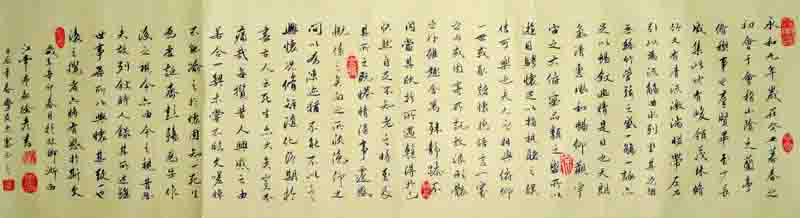 永和九年歲在癸丑暮春之
初會于會稽山陰之蘭亭
脩禊事也群賢畢至少長
咸集此地有峻領茂林脩
竹又有清流激湍暎帶左右
引以為流觴曲水列坐其次雖
無絲竹管弦之盛一觴一詠亦
足以暢敘幽情是日也天朗
氣清惠風和暢仰觀宇
宙之大俯察品類之盛所以
遊目騁懷足以極視聽之娛
信可樂也夫人之相與俯仰
一世或取諸懷抱悟言一室
之內或因寄所託放浪形骸
之外雖趣舍萬殊靜躁不
同當其欣於所遇暫得於己
快然自足不知老之將至及
其所之既惓情隨事遷感
慨係之矣向之所欣俛仰之
間以為陳迹猶不能不以之
興懷況脩短隨化終期於
盡古人云死生亦大矣豈不
痛哉每攬昔人興感之由
若合一契未嘗不臨文嗟悼
不能喻之於懷固知一死生
為虛誕齊彭殤為妄作
後之視今亦由今之視昔悲
夫故列敘時人錄其所述雖
世事異所以興懷其致一也
後之攬者亦將有感於斯文